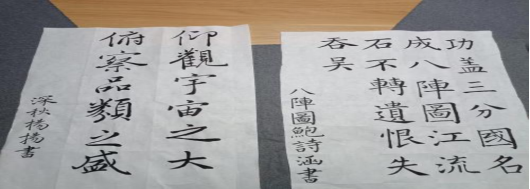 功盖三分國名
成八陣圖江流
石不轉遺恨失
吞吴
八陣圖鮑詩涵書
仰觀宇宙之大
俯察品類之盛
深秋楊揚書